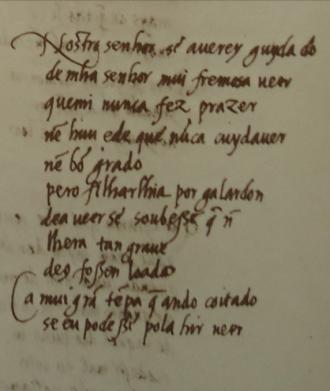 Nostro senhor, sé auerey guysa do
de mha senhor mui fremosa ueer
quemi nunca fez prazer
nẽ hũu ede quẽ nũca cuydauer
nẽ bõ grado
pero filharlhia por galardon
dea ueer sé soubesse q̃ ñ
lhera tan graue
des fossen loado
Ca mui grã tẽpa q̃ ando coitado
se eu podessẽ pola hir ueer